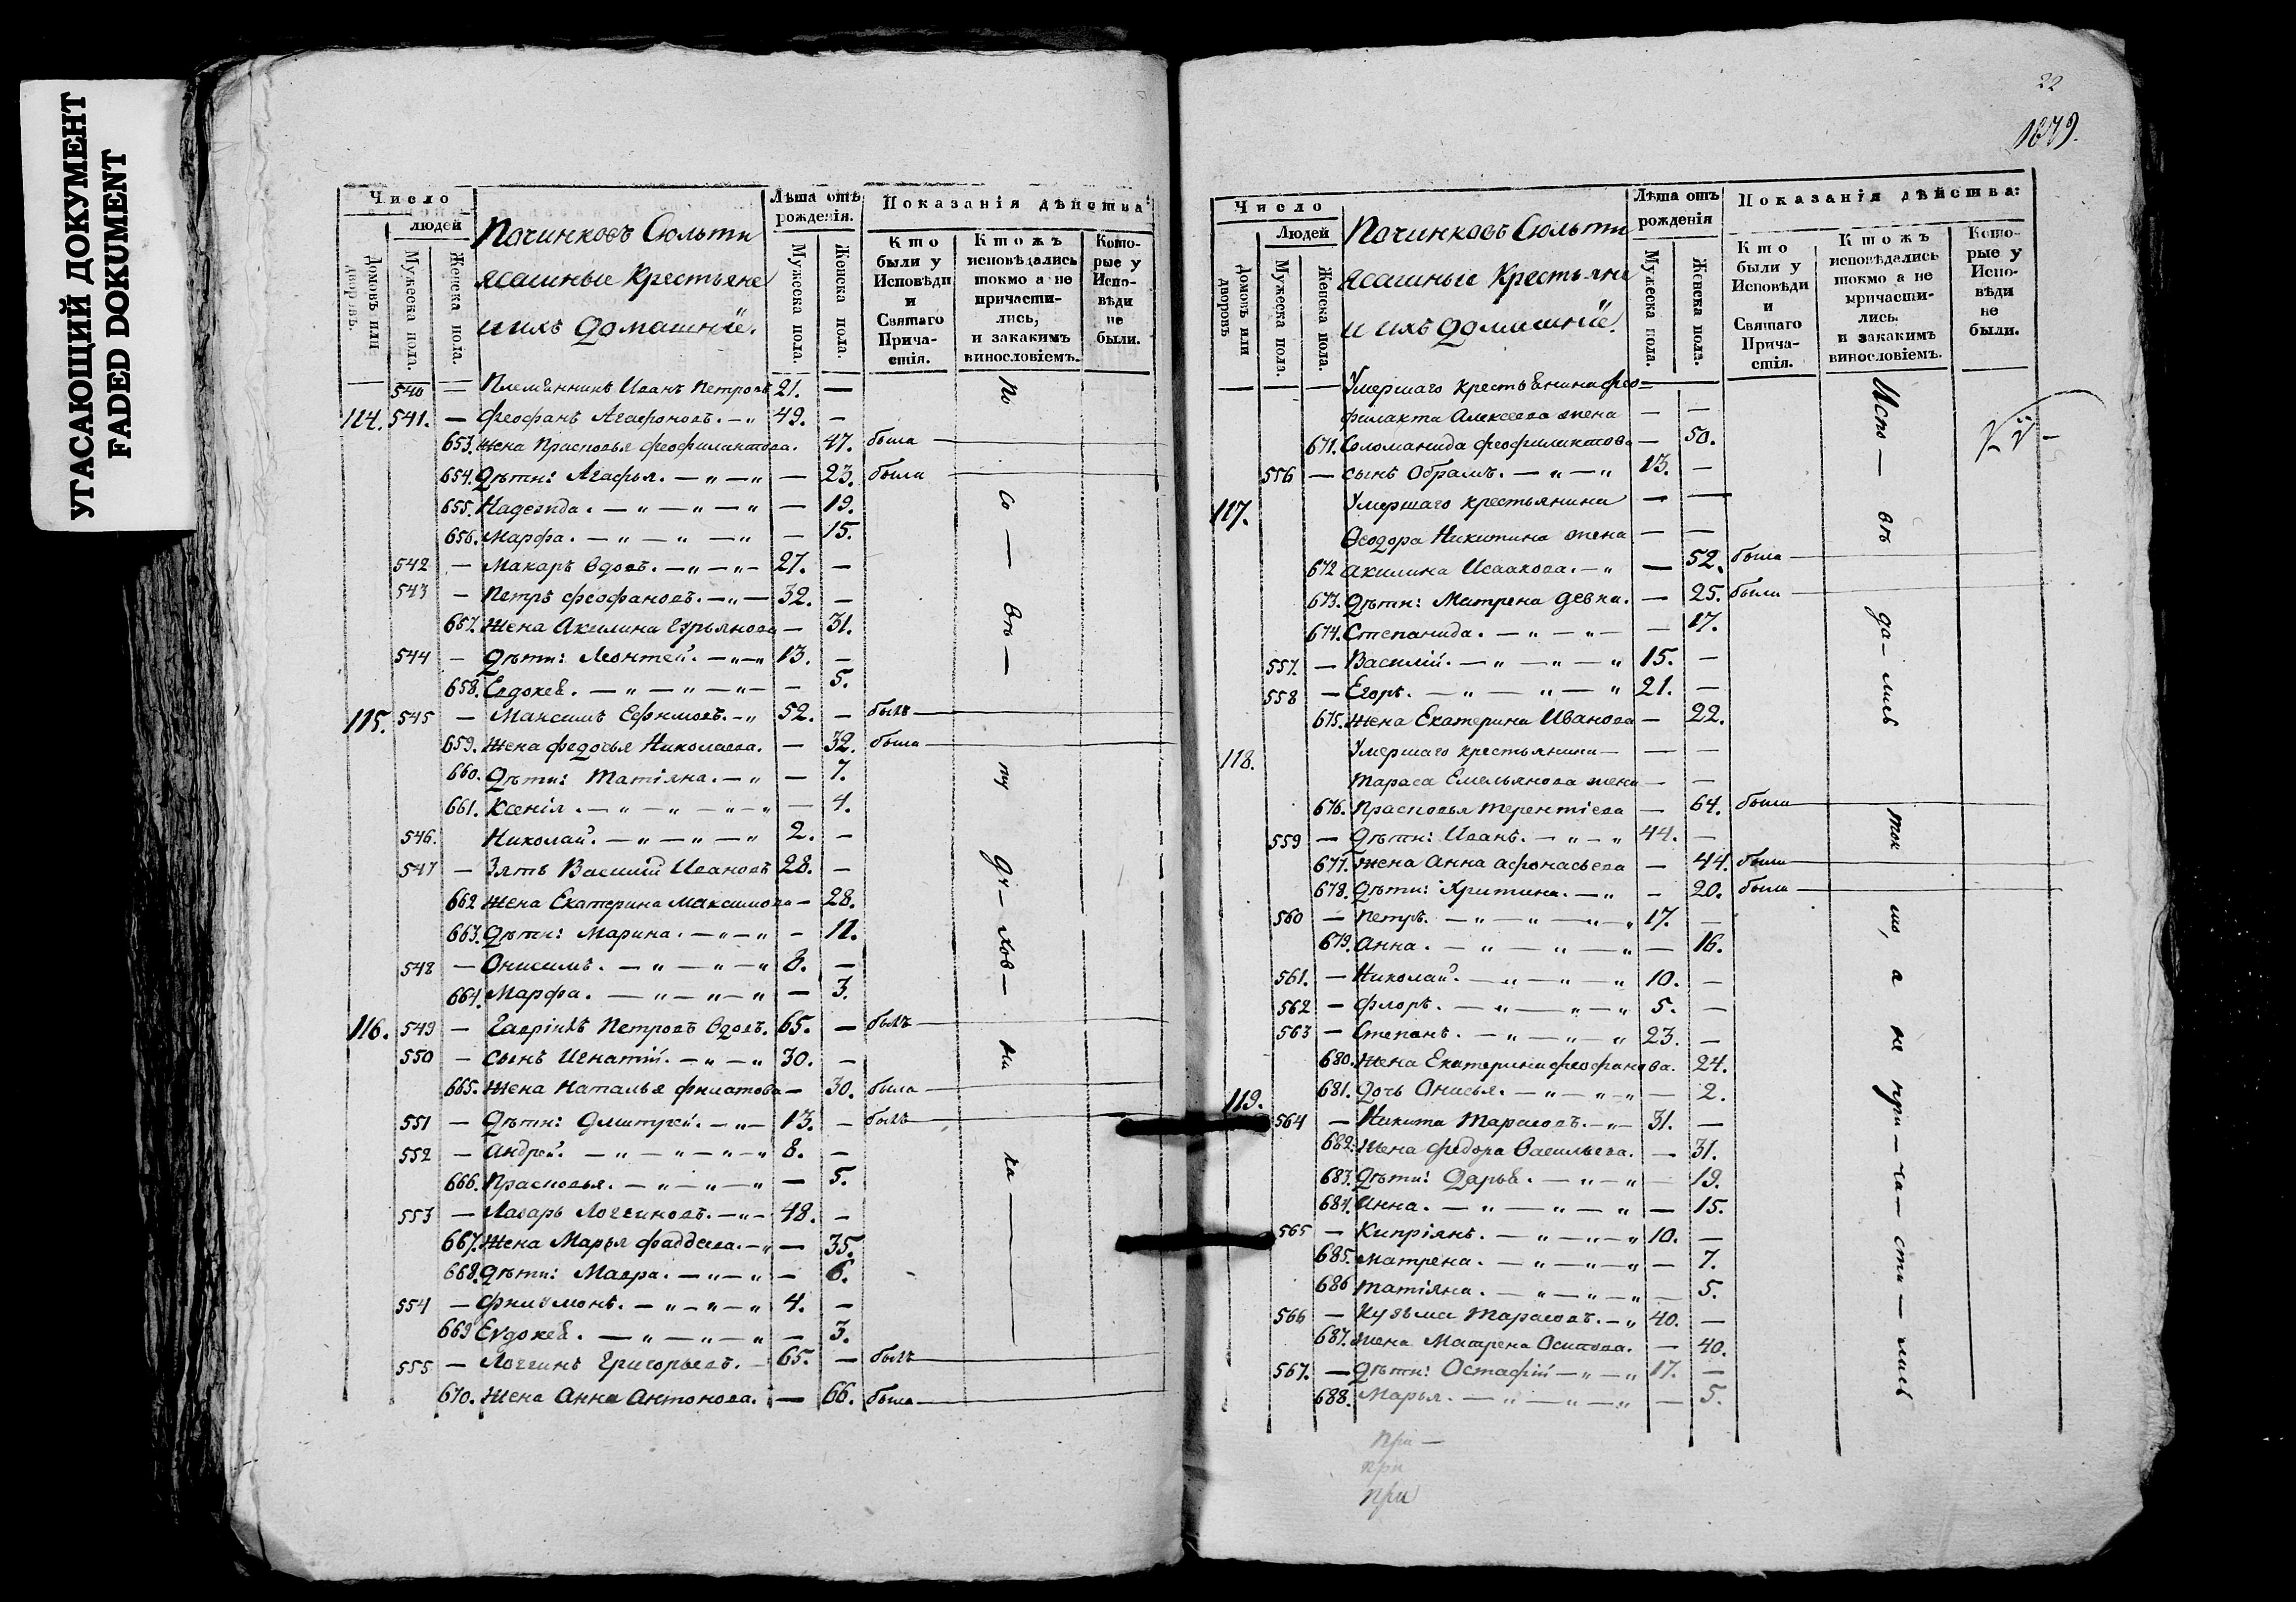 УГАСАЮЩИЙ ДОКУМЕНТ
FADED DOKUMENT
Число
людей
Домовъ или дворовъ.
Мужеска пола.
Женска пола.
Починковъ Сюльти
ясашные крестьяне
и ихъ домашніе.
Лѣта отъ рожденія.
Мужеска пола.
Женска пола.
Показанія дѣйства:
Кто были у Исповѣди и Святаго Прича-стія.
Ктожъ исповѣдались токмо а не причасти-лись, и закакимъ винословіемъ.
Кото-рые у Испо-вѣди не были.
540 — Племянникъ Иванъ Петровъ 21. —
114. 541. — Феофанъ Агафоновъ. — „ 49. —
653. жена Прасковья Феофилактова. 47. была
654. Дѣти: Агафья. — „ — „ — 23. была
655. Надежда. — „ — „ — „ — 19.
656. Марфа. — „ — „ — „ — 15.
542 — Макаръ вдовъ. — „ — „ — 27. —
543 — Петръ Феофановъ. — „ — 32. —
657. жена Акилина Гурьянова — 31.
544 — Дѣти: Леонтей. — „ — „ 13. —
658. Евдокея. — „ — „ — „ — — 5.
115. 545 — Максимъ Ефимовъ. — „ 52. — былъ
659. жена Федосья Николаева. — 32. была
660. Дѣти: Татіяна. — „ — 7.
661. Ксенія. — „ — „ — „ — „ — 4.
546. Николай. — „ — „ — „ 2. —
547 — Зять Василій Ивановъ 28. —
662 жена Екатерина Максимова — 28.
663. Дѣти: Марина. — „ — „ — 11.
548 — Онисимъ. — „ — „ — „ 8. —
664. Марфа. — „ — „ — „ — 3.
116. 549 — Гаврілъ Петровъ вдовъ. 65. — былъ
550 — сынъ Игнатій. — „ — „ 30. —
665. жена Наталья Филатова — 30. была
551 — Дѣти: Дмитрей. — „ — 13. — былъ
552 — Андрей. — „ — „ — „ — „ 8. —
666. Прасковья. — „ — „ — „ — 5.
553 — Лазарь Логгиновъ. — „ — 48. —
667. жена Марья Фаддеева. — „ — 35.
668. Дѣти: Мавра. — „ — „ — 6.
554 — Филимонъ. — „ — „ — „ 4. —
669 Евдокея. — „ — „ — „ — 3.
555 — Логгинъ Григорьевъ. — 65. — былъ
670. жена Анна Антонова. — 66. была
по
со — въ —
ту
ду — хов —
ни
ка
22
1879.
Число
Людей
Домовъ или дворовъ
Мужеска пола.
Женска пола.
Починковъ Сюльти
ясашные крестьяне
и ихъ домашніе.
Лѣта отъ рожденія
Мужеска пола.
Женска пола.
Показанія дѣйства:
Кто были у Исповѣди и Святаго Прича-стія.
Ктожъ исповѣдались токмо а не причасти-лись. и закакимъ винословіемъ.
Кото-рые у Испо-вѣди не были.
— Умершаго крестьянина Фео — —
филакта Алексеева жена — —
671. Соломанида Феофилактова — 50.
556 — сынъ Обрамъ. — „ — „ 13. —
117. Умершаго крестьянина — —
Ѳеодора Никитина жена — —
672 Акилина Исаакова. — „ — 52. была
673. Дѣти: Матрена девка. — 25. была
674. Степанида. — „ — „ — — 17.
557. — Василій. — „ — „ — „ 15. —
558 — Егоръ. — „ — „ — „ 21. —
675. жена Екатерина Иванова — 22.
118. Умершаго крестьянина — — —
Тараса Емельянова жена — —
676. Прасковья Терентіева — 64. была
559 — Дѣти: Иванъ. — „ — „ 44. —
677. жена Анна Афонасьева — 44. была
678. Дѣти: Хритина. — „ — 20. была
560 — Петръ. — „ — „ — „ — „ 17. —
679. Анна. — „ — „ — „ — 16.
561. — Николай. — „ — „ — „ 10. —
562 — Флоръ. — „ — „ — „ 5. —
563 — Степанъ. — „ — „ — „ 23. —
680. жена Екатерина Феофанова. 24.
681. дочь Анисья. — „ — „ — „ — 2.
119. 564 — Никита Тарасовъ. — „ — 31. —
682. жена Федора Васильева. — 31.
683. Дѣти: Дарья. — „ — „ — 19.
684. Анна. — „ — „ — „ — 15.
565 — Кипріянъ. — „ — „ — „ 10. —
685. Матрена. — „ — „ — „ — 7.
686 Татіяна. — „ — „ — „ — 5.
566 — Кузьма Тарасовъ. — „ 40. —
687. жена Матрена Осипова. — 40.
567. — Дѣти: Остафій — „ — „ 17. —
688. Марья. — „ — „ — „ — 5.
Испо — вѣ
да — лись
ток
мо, а
не
при — ча — сти — лись
При —
при
при